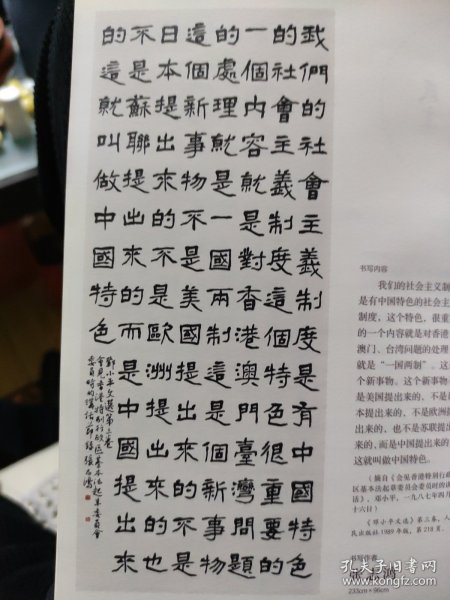 我們的社會主義制度是有中國特色
的社會主義制度這個特色很重要的
一個內容就是對香港澳門臺灣問題
的處理就是一國兩制這是個新事物
這個新事物不是美國提出來的不是
日本提出來的不是歐洲提出來的也
不是蘇聯提出來的而是中國提出來
的這就叫做中國特色
鄧小平文選第三卷
會見香港特別行政區基本法起草委員會
委員時的講話節錄 張
书写内容
我们的社会主义制
是有中国特色的社会主
制度，这个特色，很重
的一个内容就是对香港
澳门、台湾问题的处理
就是“一国两制”。这
个新事物。这个新事物
是美国提出来的，不是
本提出来的，不是欧洲
出来的，也不是苏联提
来的，而是中国提出来的
这就叫做中国特色。
（摘自《会见香港特别行
区基本法起草委员会委员时的讲
话》，邓小平，一九八七年四月
十六日）
《邓小平文选》第三卷，人
民出版社1989年版，第218页。
书写作者
233cm×96cm
孔夫子旧书网